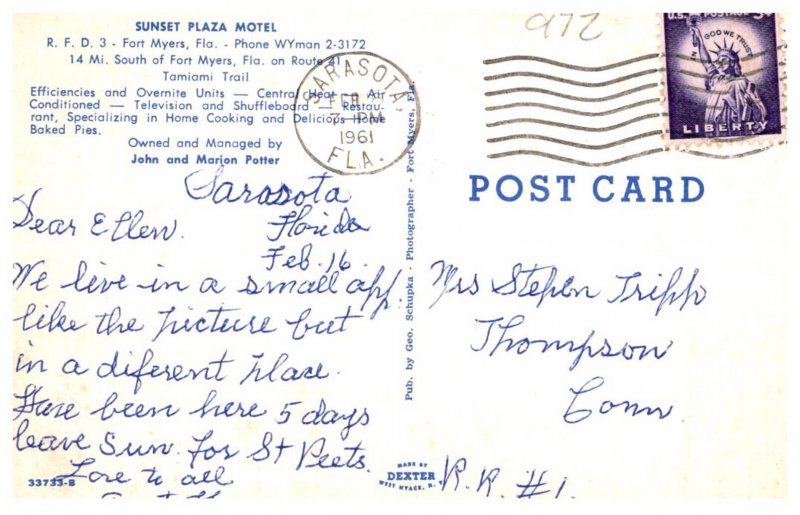 SUNSET PLAZA MOTEL
R. F. D. 3 - Fort Myers, Fla. - Phone WYman 2-3172
14 Mi. South of Fort Myers, Fla. on Route 41
Tamiami Trail
Efficiencies and Overnite Units — Central Heat — Air
Conditioned — Television and Shuffleboard — Restau-
rant, Specializing in Home Cooking and Delicious Home
Baked Pies.
Owned and Managed by
John and Marion Potter
SARASOTA,
FEB
PM
1961
FLA.
972
U.S. POSTAGE 3¢
IN GOD WE TRUST
LIBERTY
POST CARD
Sarasota
Florida
Feb. 16
Dear Ellen.
We live in a small app.
like the picture but
in a diferent place.
Have been here 5 days
leave Sun. for St Peets.
Love to all
Pub. by Geo. Schupka - Photographer - Fort Myers, Fla.
Mrs Stephen Tripp
Thompson
Conn
R. R. #1.
33733-B
MADE BY
DEXTER
WEST NYACK, N. Y.